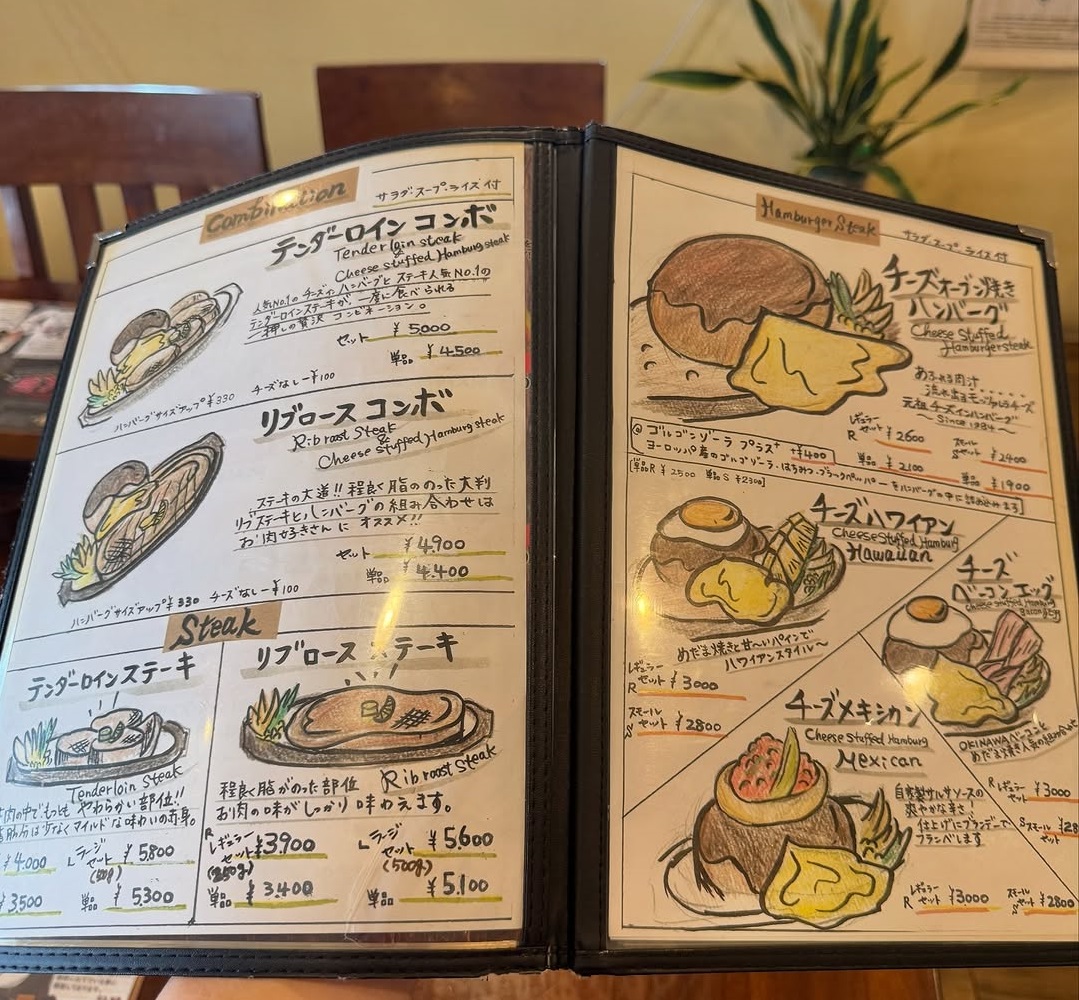 Combination
サラダ・スープ・ライス付
テンダーロイン コンボ
Tenderloin steak
&
Cheese stuffed Hamburg steak
人気No.1の チーズインハンバーグと ステーキ人気No.1の
テンダーロインステーキが 一度に食べられる
一押しの贅沢 コンビネーション。
セット ¥5000
単品 ¥4500
ハンバーグサイズアップ ¥330 チーズなし-¥100
リブロース コンボ
Rib roast Steak
&
Cheese stuffed Hamburg steak
ステーキの大道!! 程良く脂ののった大判
リブステーキとハンバーグの組み合わせは
お肉好きさんに オススメ!!
セット ¥4,900
単品 ¥4.400
ハンバーグサイズアップ ¥330 チーズなし-¥100
Steak
テンダーロインステーキ
Tenderloin Steak
肉の中でもっとも やわらかい部位!!
脂肪分は少なくマイルドな味わいの赤身。
¥4.000
L ラージセット (500g) ¥5,800
¥3,500
単品 ¥5,300
リブロース ステーキ
Rib roast Steak
程良く脂がのった部位
お肉の味がしっかり味わえます。
R レギュラーセット (250g) ¥3,900
L ラージセット (500g) ¥5,600
単品 ¥3.400
単品 ¥5.100
Hamburger Steak
サラダ・スープ・ライス付
チーズオーブン焼き
ハンバーグ
Cheese Stuffed
Hamburgersteak
あふれる肉汁
流れ出るモッツァレラチーズ
元祖チーズインハンバーグ
Since 1984~
レギュラー
R セット ¥2600
スモール
S セット ¥2400
単品 ¥2100
単品 ¥1900
@ ゴルゴンゾーラ プラス+ +¥400
ヨーロッパ産のゴルゴンゾーラ・はちみつ・ブラックペッパーをハンバーグの中に詰め込みます
[単品R ¥2500 単品S ¥2300]
チーズハワイアン
Cheese Stuffed Hamburg
Hawaiian
めだま焼きと甘~いパインで
ハワイアンスタイル~
レギュラー
R セット ¥3000
スモール
S セット ¥2800
チーズ
ベーコンエッグ
Cheese stuffed Hamburg
Bacon Egg
OKINAWAベーコンと
R レギュラーセット ¥3000
S スモールセット ¥28
チーズメキシカン
Cheese Stuffed Hamburg
Mexican
自家製サルサソースの
爽やかな辛さ!
仕上げにブランデーで
フランベします
レギュラー
R セット ¥3000
スモール
S セット ¥2800